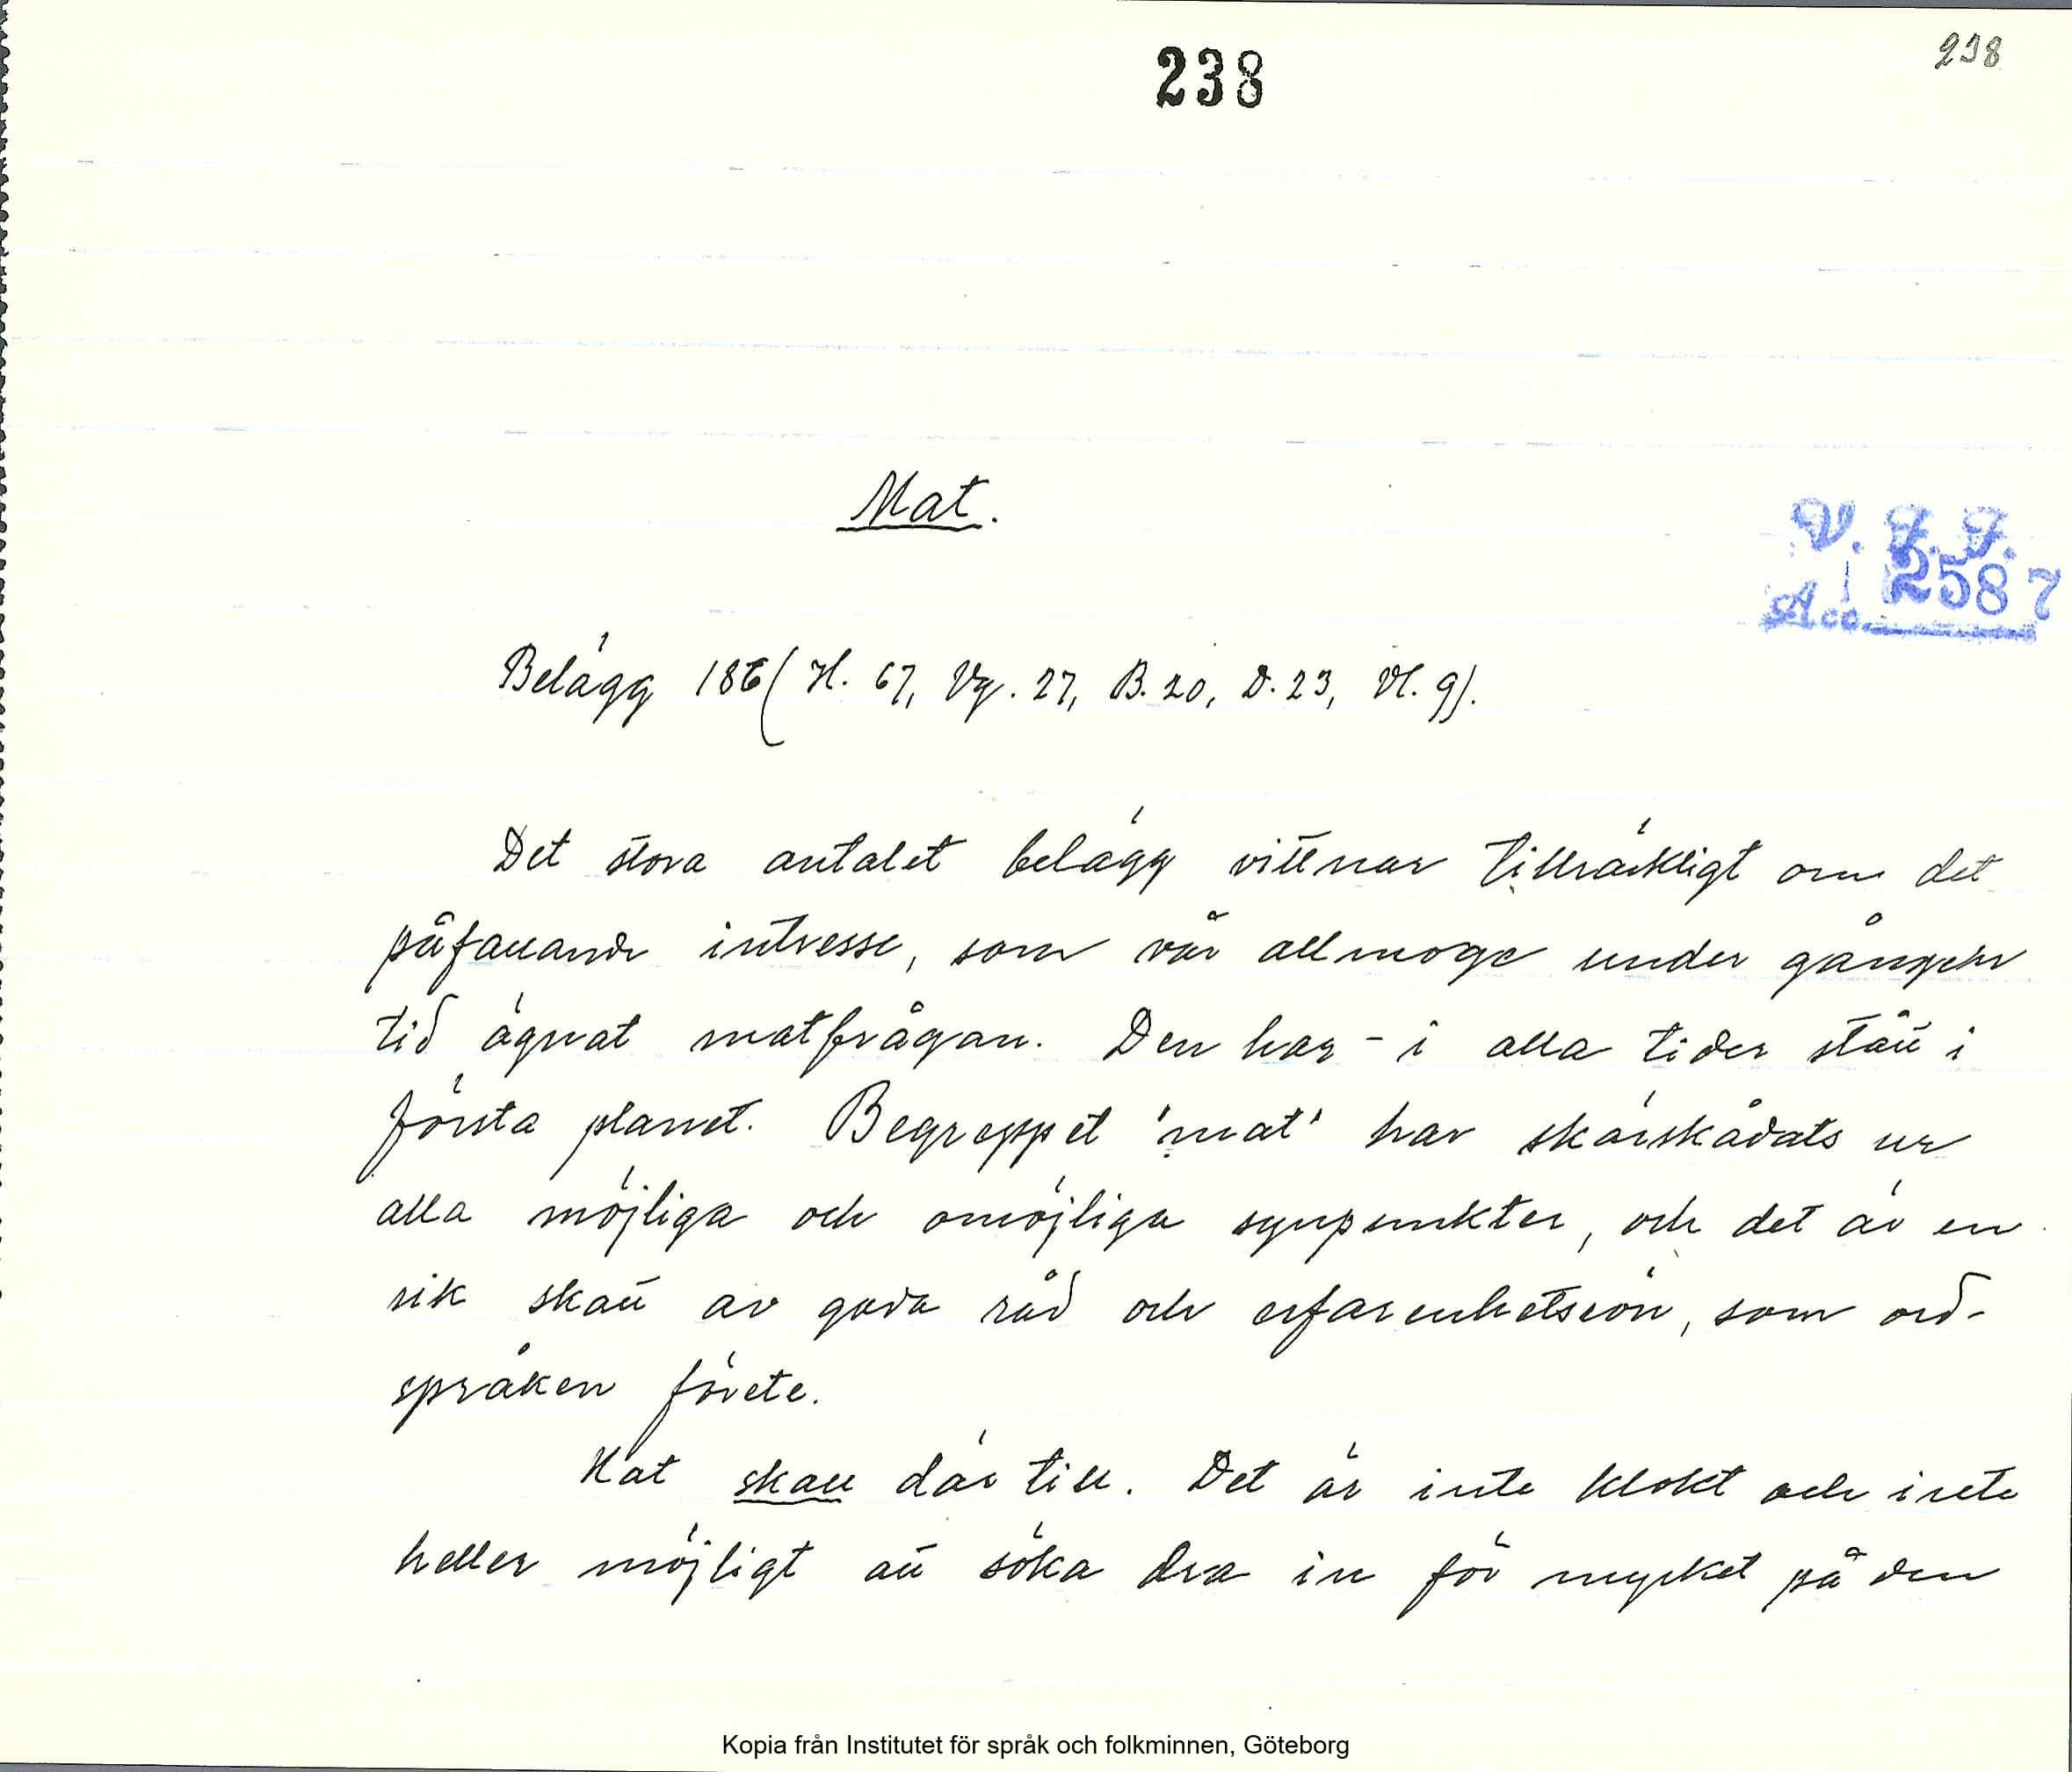 238
238
Mat.
V. F. F.
Acc. 2587
Belägg 186 (H. 67, Vg. 27, B. 20, D. 23, Vl. 9).
Det stora antalet belägg vittnar tillräckligt om det
påfallande intresse, som vår allmoge under gången
tid ägnat matfrågan. Den har - i alla tider stått i
första planet. Begreppet 'mat' har skärskådats ur
alla möjliga och omöjliga synpunkter, och det är en
rik skatt av goda råd och erfarenhetsrön, som ord-
språken förete.
Mat skall där till. Det är inte klokt och inte
heller möjligt att söka dra in för mycket på den
Kopia från Institutet för språk och folkminnen, Göteborg